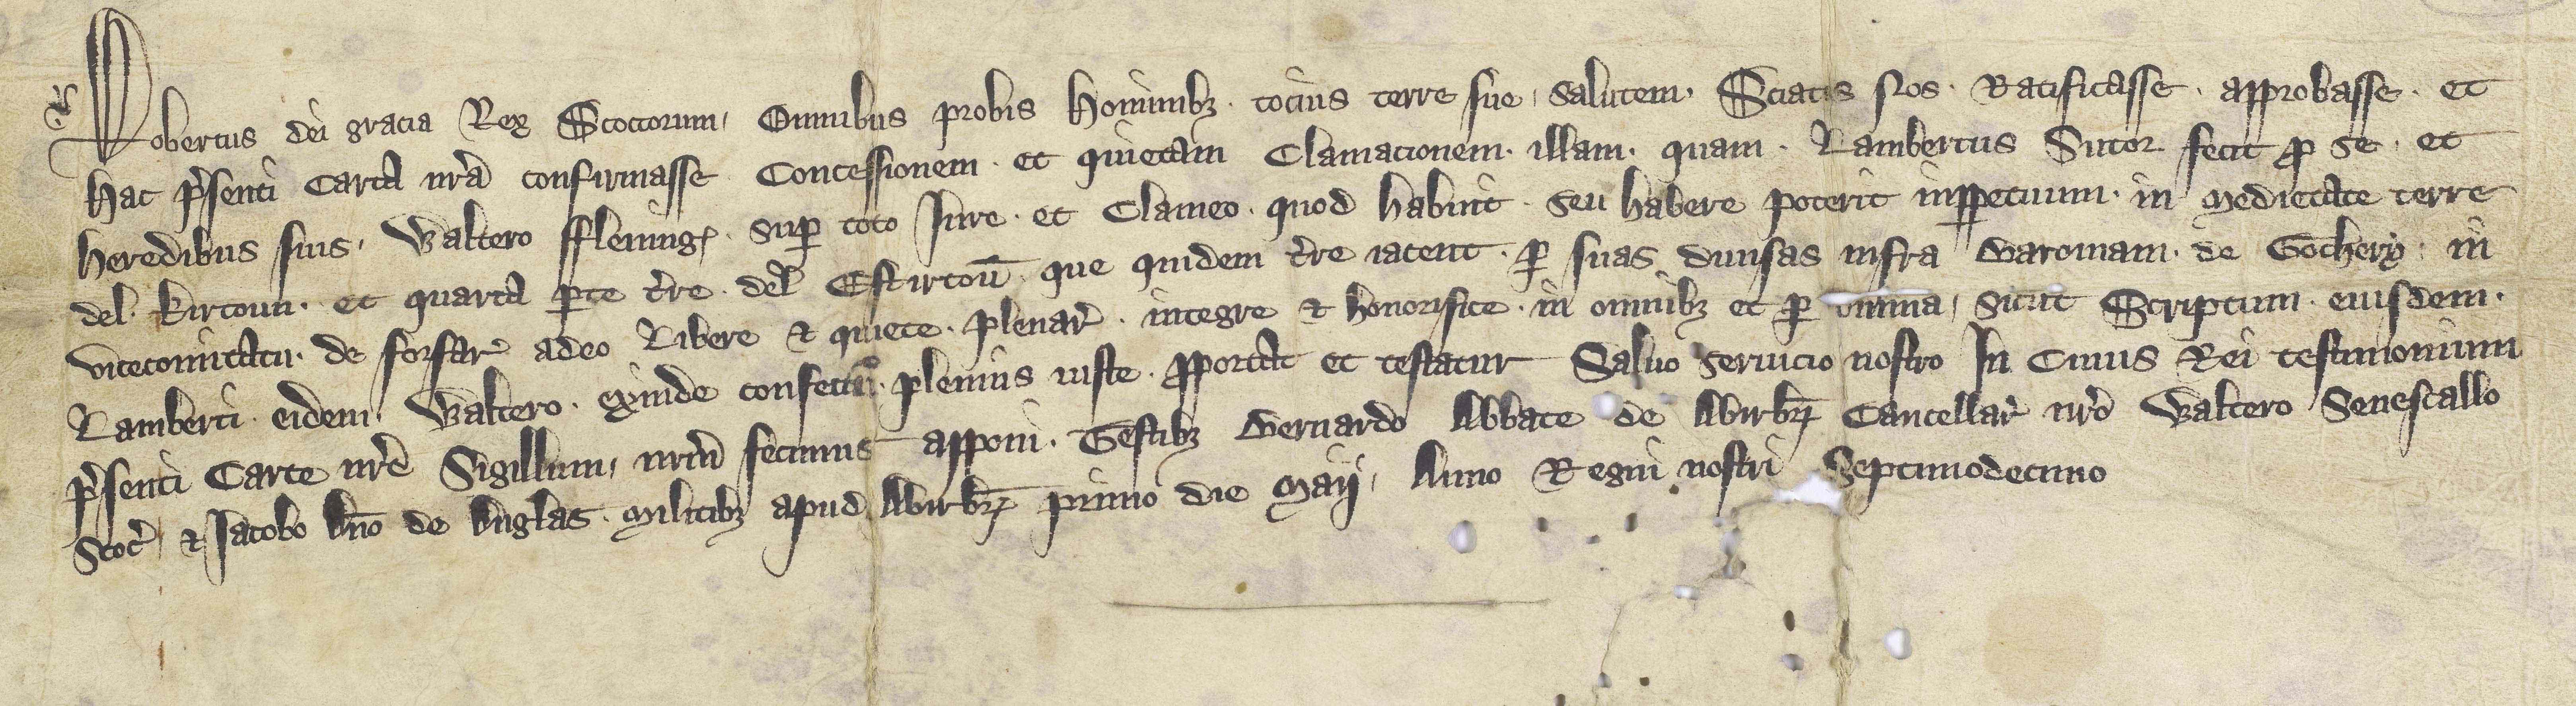 Robertus dei gracia Rex Scottorum, Omnibus probis hominibꝫ · tocius terre sue, Salutem · Sciatis Nos · Ratificasse · approbasse · et
hac p̄senti Carta nr̄a confirmasse · Concessionem · et quietam Clamacionem · illam · quam · Lambertus Sutor fecit ꝓ se · et
heredibus suis, Waltero ffleming · suꝑ toto Iure · et Clameo · quod habuit · seu habere poterit inꝑpetuum · in medietate terre
del · Kirtoun · et quarta ꝑte tr̄e · del Estirtoū · que quidem tr̄e iacent · ꝑ suas diuisas infra Baroniam · de Gochery · in
vicecomitatu · de forfar̄ adeo Libere & quiete · plenar̄ · integre & honorifice · in omnibꝫ et ꝑ omnia, sicut Scriptum · eiusdem ·
Lamberti · eidem · Waltero · exinde confectū · plenius iuste · ꝓportat et testatur Saluo seruicio nostro In Cuius Rei testimonium
p̄senti Carte nr̄e Sigillum, nr̄m fecimus apponi · Testibꝫ Bernardo Abbate de Abirbr̄ Cancellar̄ nr̄o Waltero Senescallo
Scoc̄ · & Iacobo dn̄o de duglas · militibꝫ apud Abirbr̄ primo die Maij, Anno Regni nostri Septimodecimo